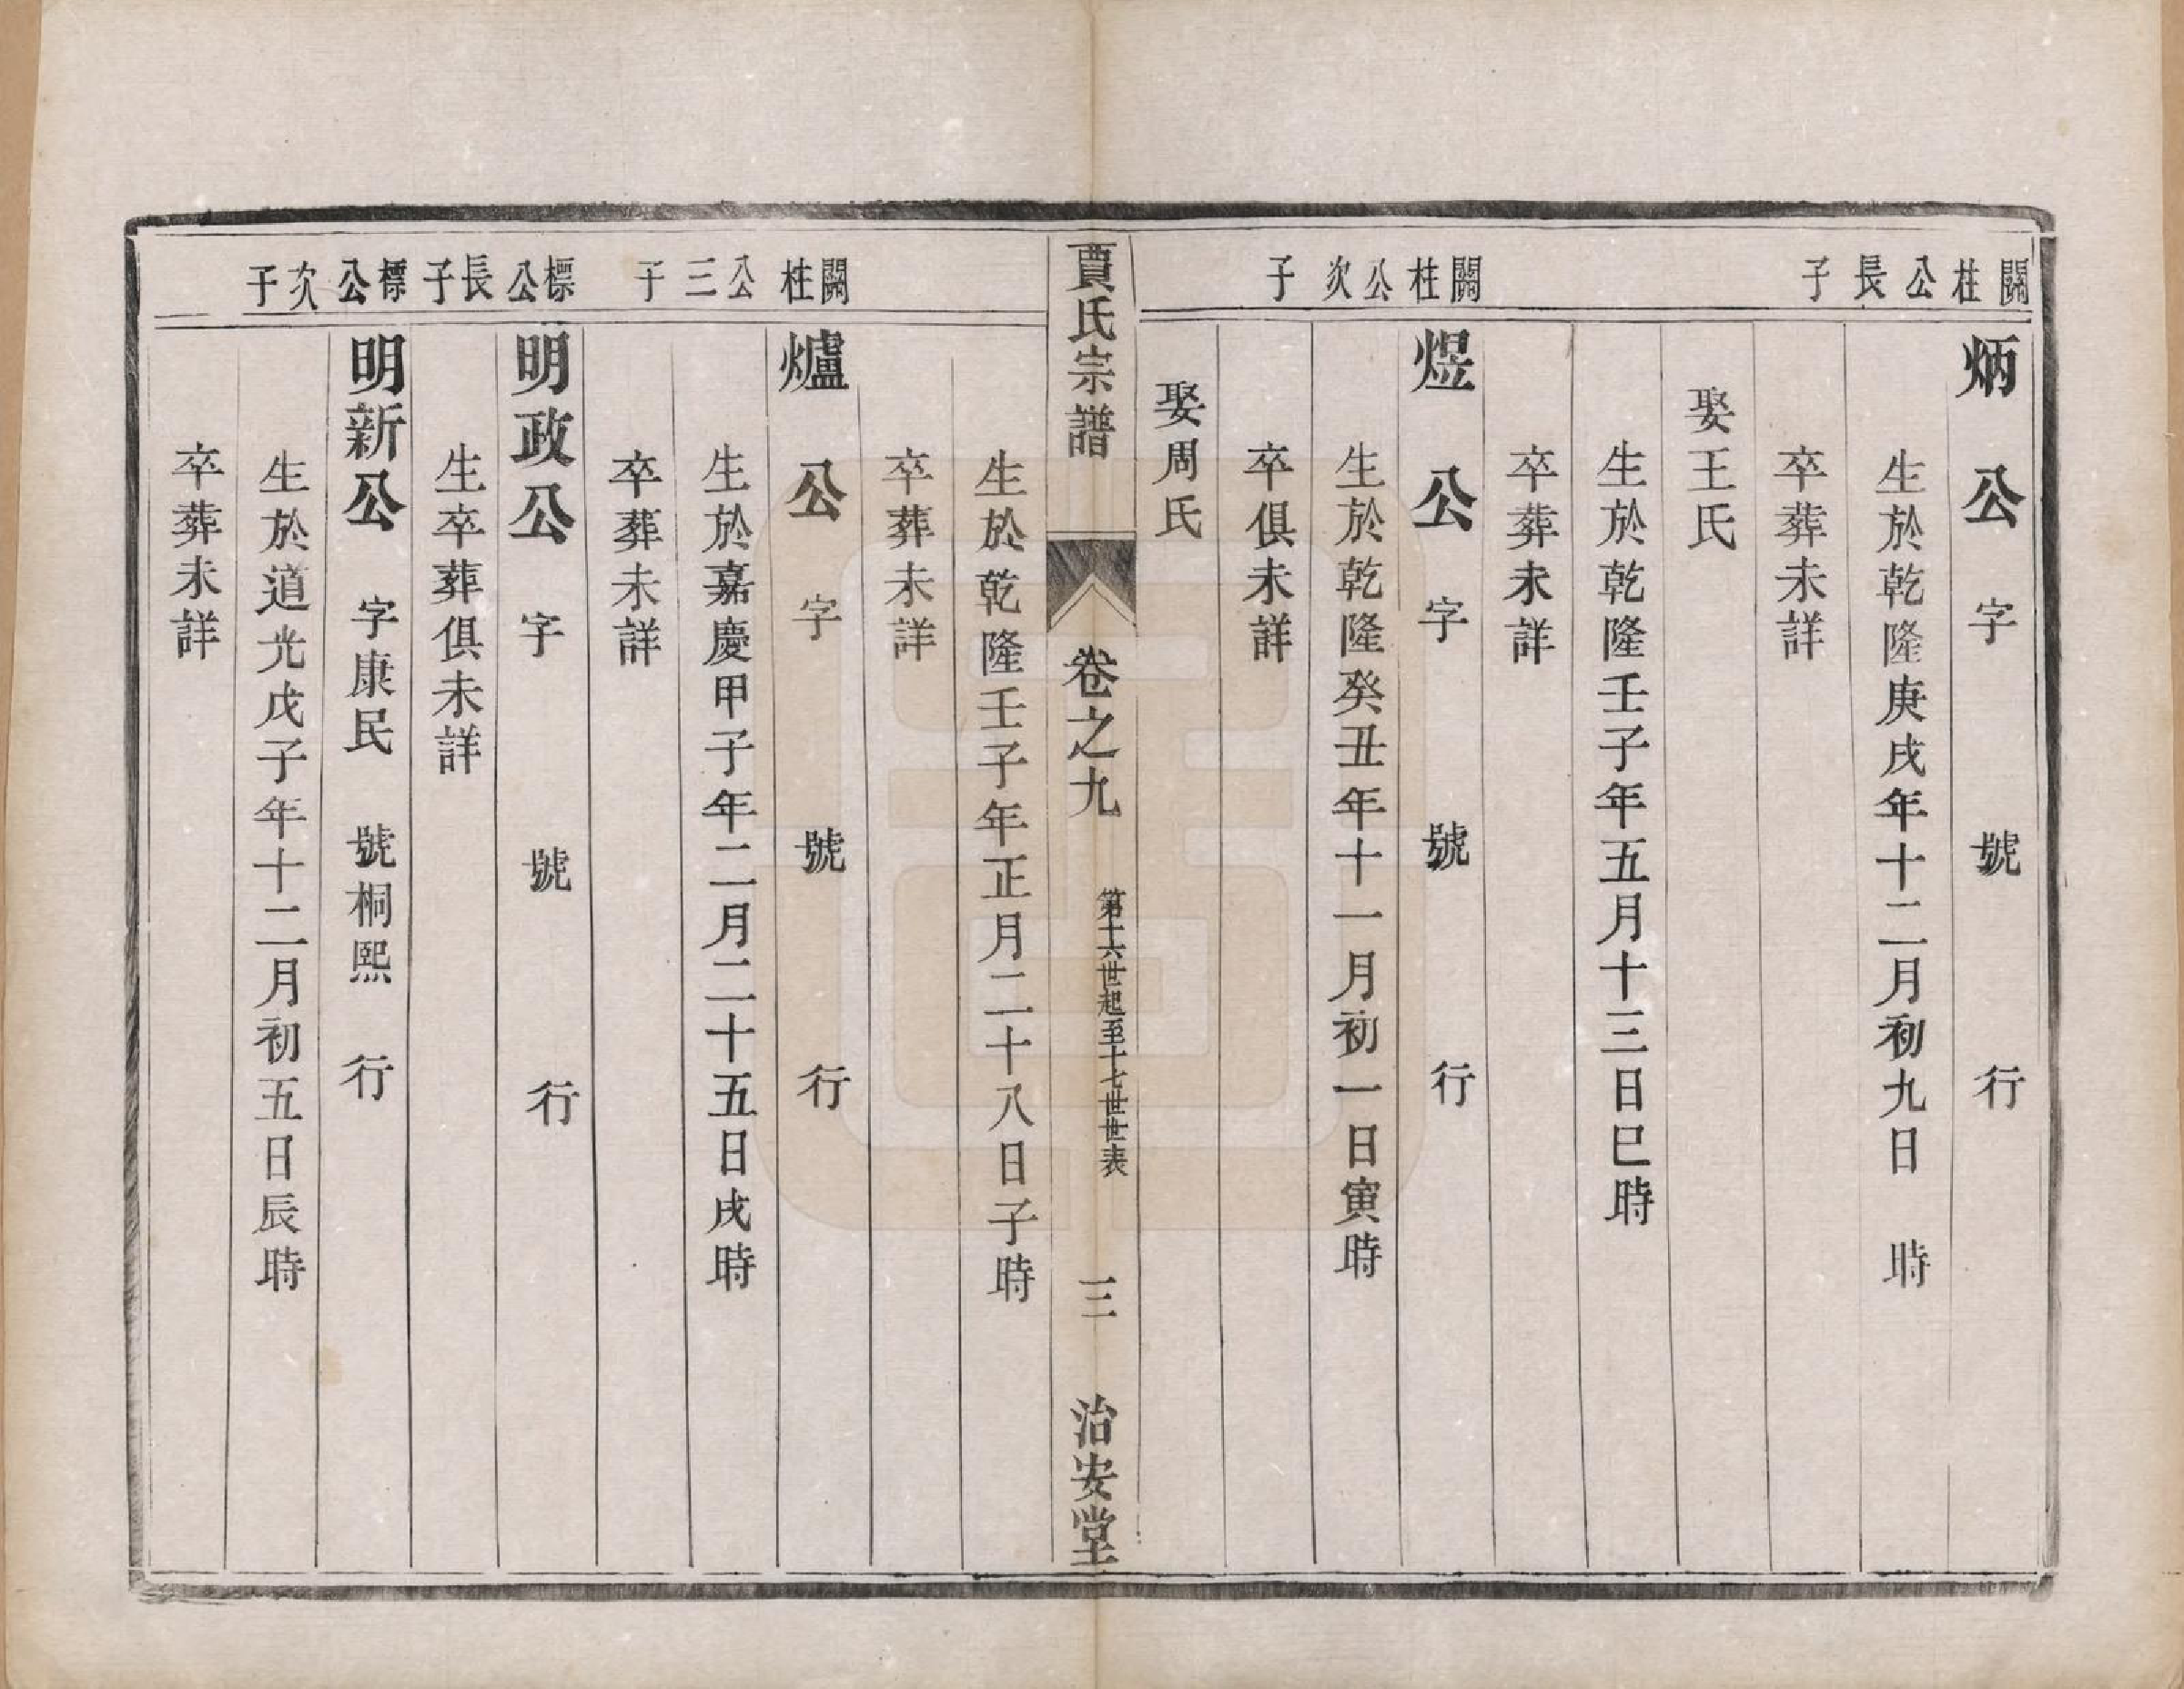 關柱公長子
炳公字　號　行
生於乾隆庚戌年十二月初九日　時
卒葬未詳
娶王氏
生於乾隆壬子年五月十三日巳時
卒葬未詳
關柱公次子
煜公字　號　行
生於乾隆癸丑年十一月初一日寅時
卒俱未詳
娶周氏
賈氏宗譜　卷之九　第十六世起至十七世世表　三　治安堂
生於乾隆壬子年正月二十八日子時
卒葬未詳
關柱公三子
爐公字　號　行
生於嘉慶甲子年二月二十五日戌時
卒葬未詳
標公長子
明政公字　號　行
生卒葬俱未詳
標公次子
明新公　字康民　號桐熙　行
生於道光戊子年十二月初五日辰時
卒葬未詳